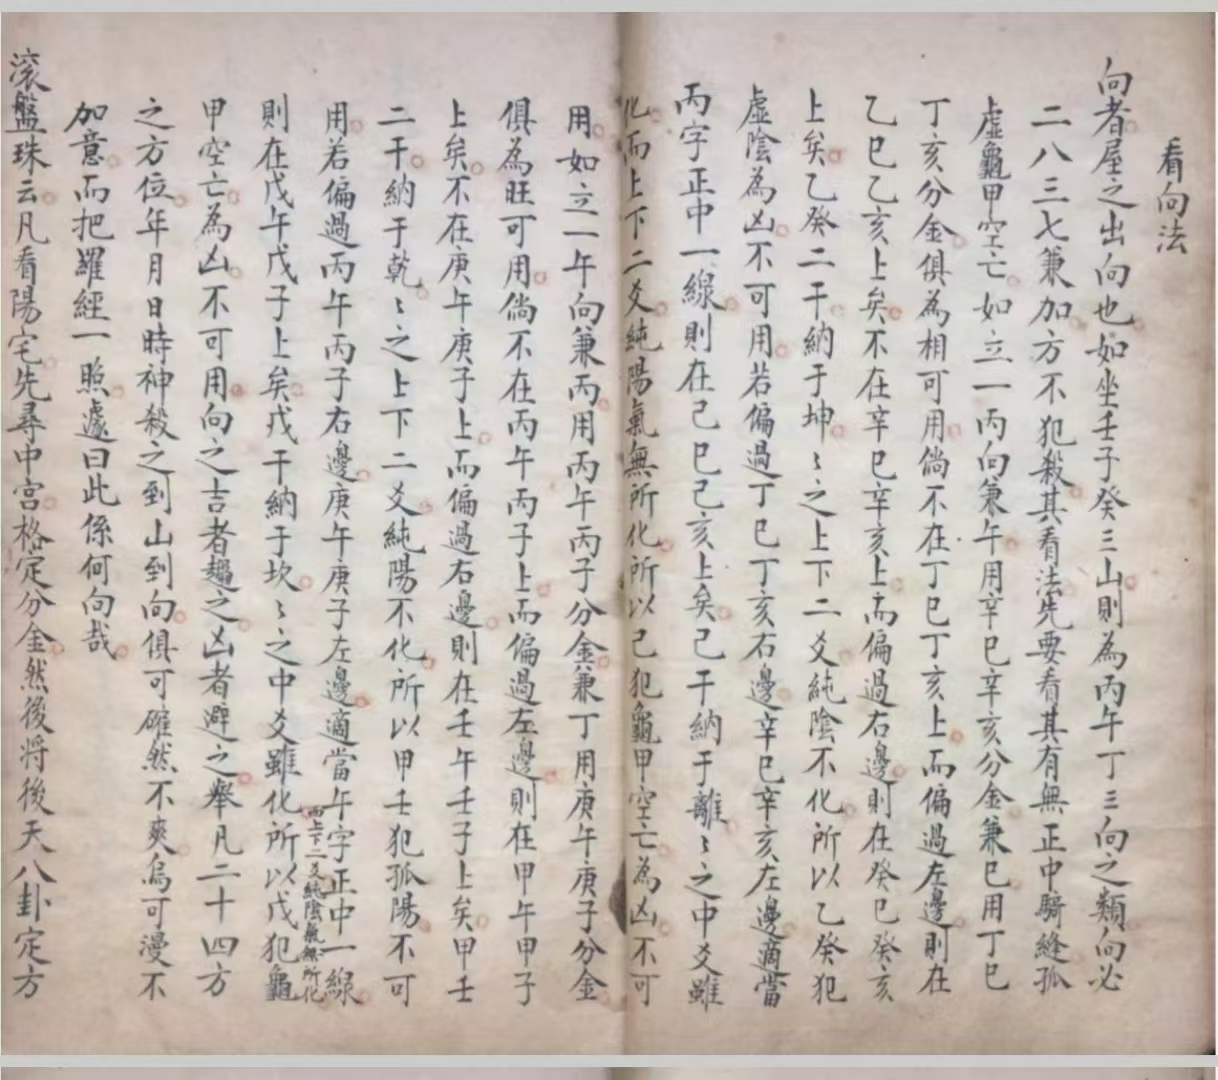 看向法
向者屋之出向也如坐壬子癸三山則為丙午丁三向之類向必
二八三七兼加方不犯殺其看法先要看其有無正中騎縫孤
虛龜甲空亡如立一丙向兼午用辛巳辛亥分金兼巳用丁巳
丁亥分金俱為相可用倘不在丁巳丁亥上而偏過左邊則在
乙巳乙亥上矣不在辛巳辛亥上而偏過右邊則在癸巳癸亥
上矣乙癸二干納于坤〻之上下二爻純陰不化所以乙癸犯
虛陰為凶不可用若偏過丁巳丁亥右邊辛巳辛亥左邊適當
丙字正中一線則在己巳己亥上矣己干納于離〻之中爻雖
化而上下二爻純陽氣無所化所以己犯龜甲空亡為凶不可
用如立一午向兼丙用丙午丙子分金兼丁用庚午庚子分金
俱為旺可用倘不在丙午丙子上而偏過左邊則在甲午甲子
上矣不在庚午庚子上而偏過右邊則在壬午壬子上矣甲壬
二干納于乾〻之上下二爻純陽不化所以甲壬犯孤陽不可
用若偏過丙午丙子右邊庚午庚子左邊適當午字正中一線
則在戊午戊子上矣戊干納于坎〻之中爻雖化而上下二爻純陰氣無所化所以戊犯龜
甲空亡為凶不可用向之吉者趨之凶者避之舉凡二十四方
之方位年月日時神殺之到山到向俱可確然不爽烏可漫不
加意而把羅經一照遽曰此係何向哉
滾盤珠云凡看陽宅先尋中宮格定分金然後將後天八卦定方